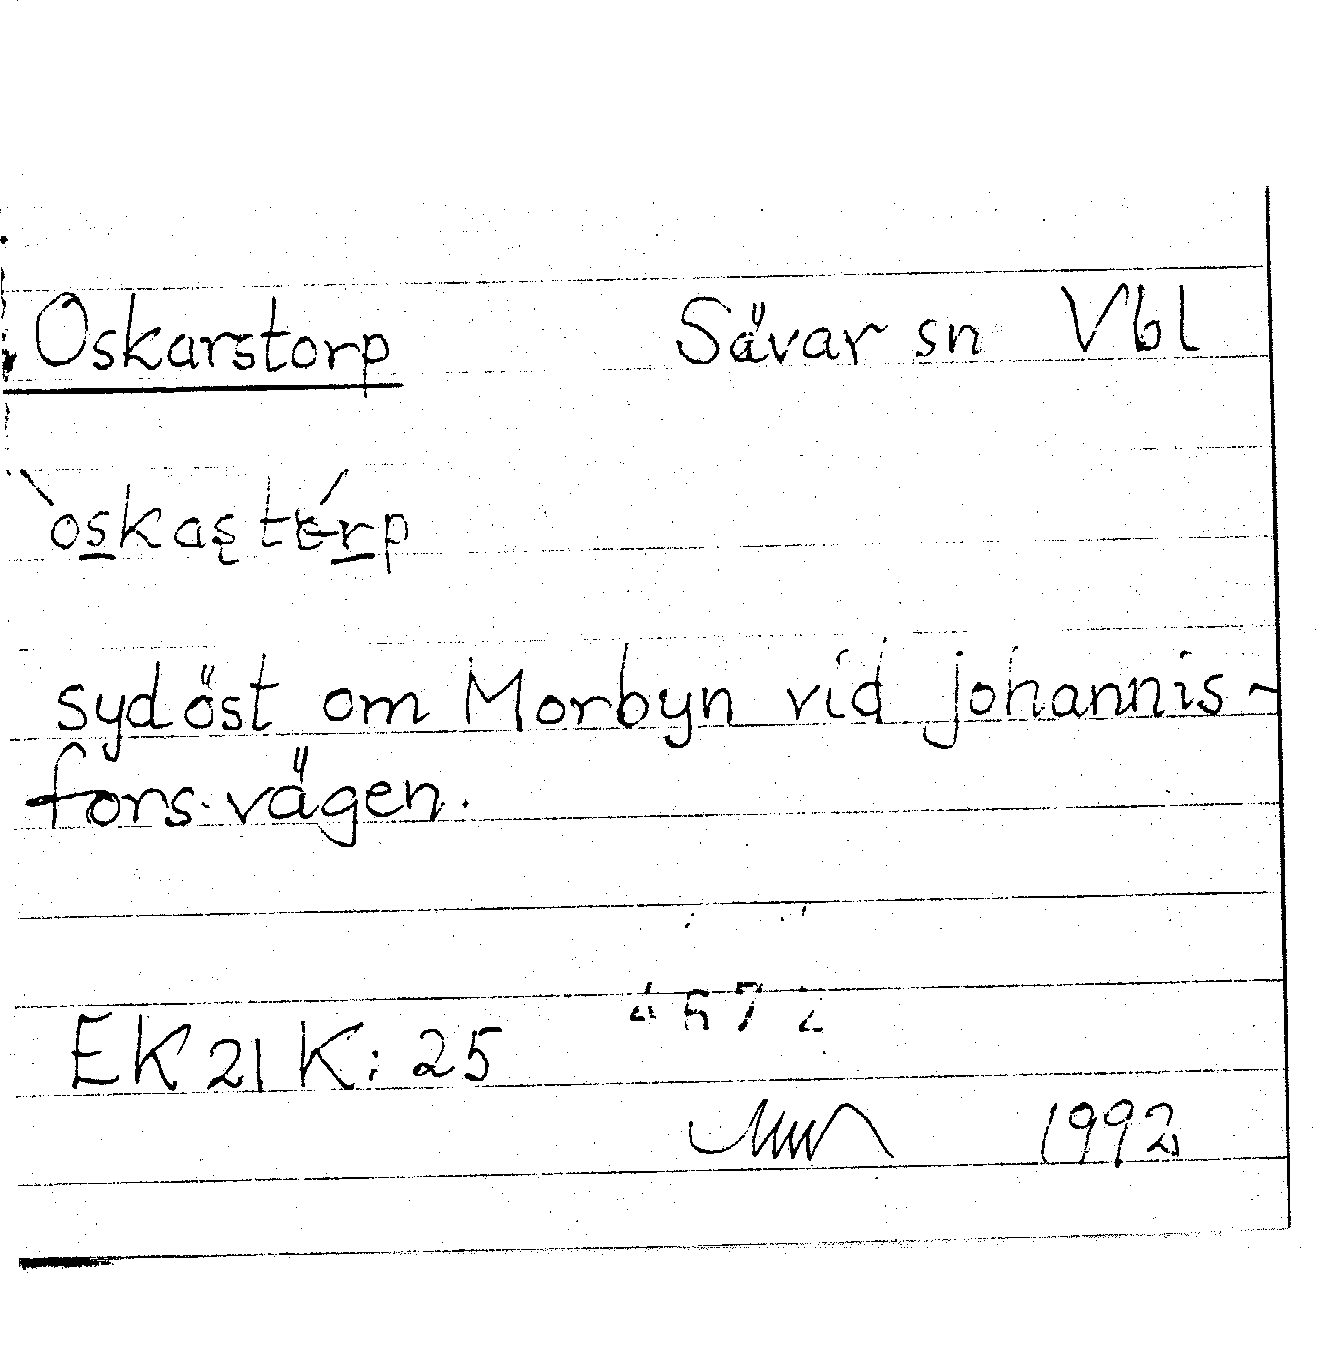 Oskarstorp Sävar sn Vbl
sydöst om Morbyn vid johannis-
fors-vägen.
EK 21 K: 25
1992